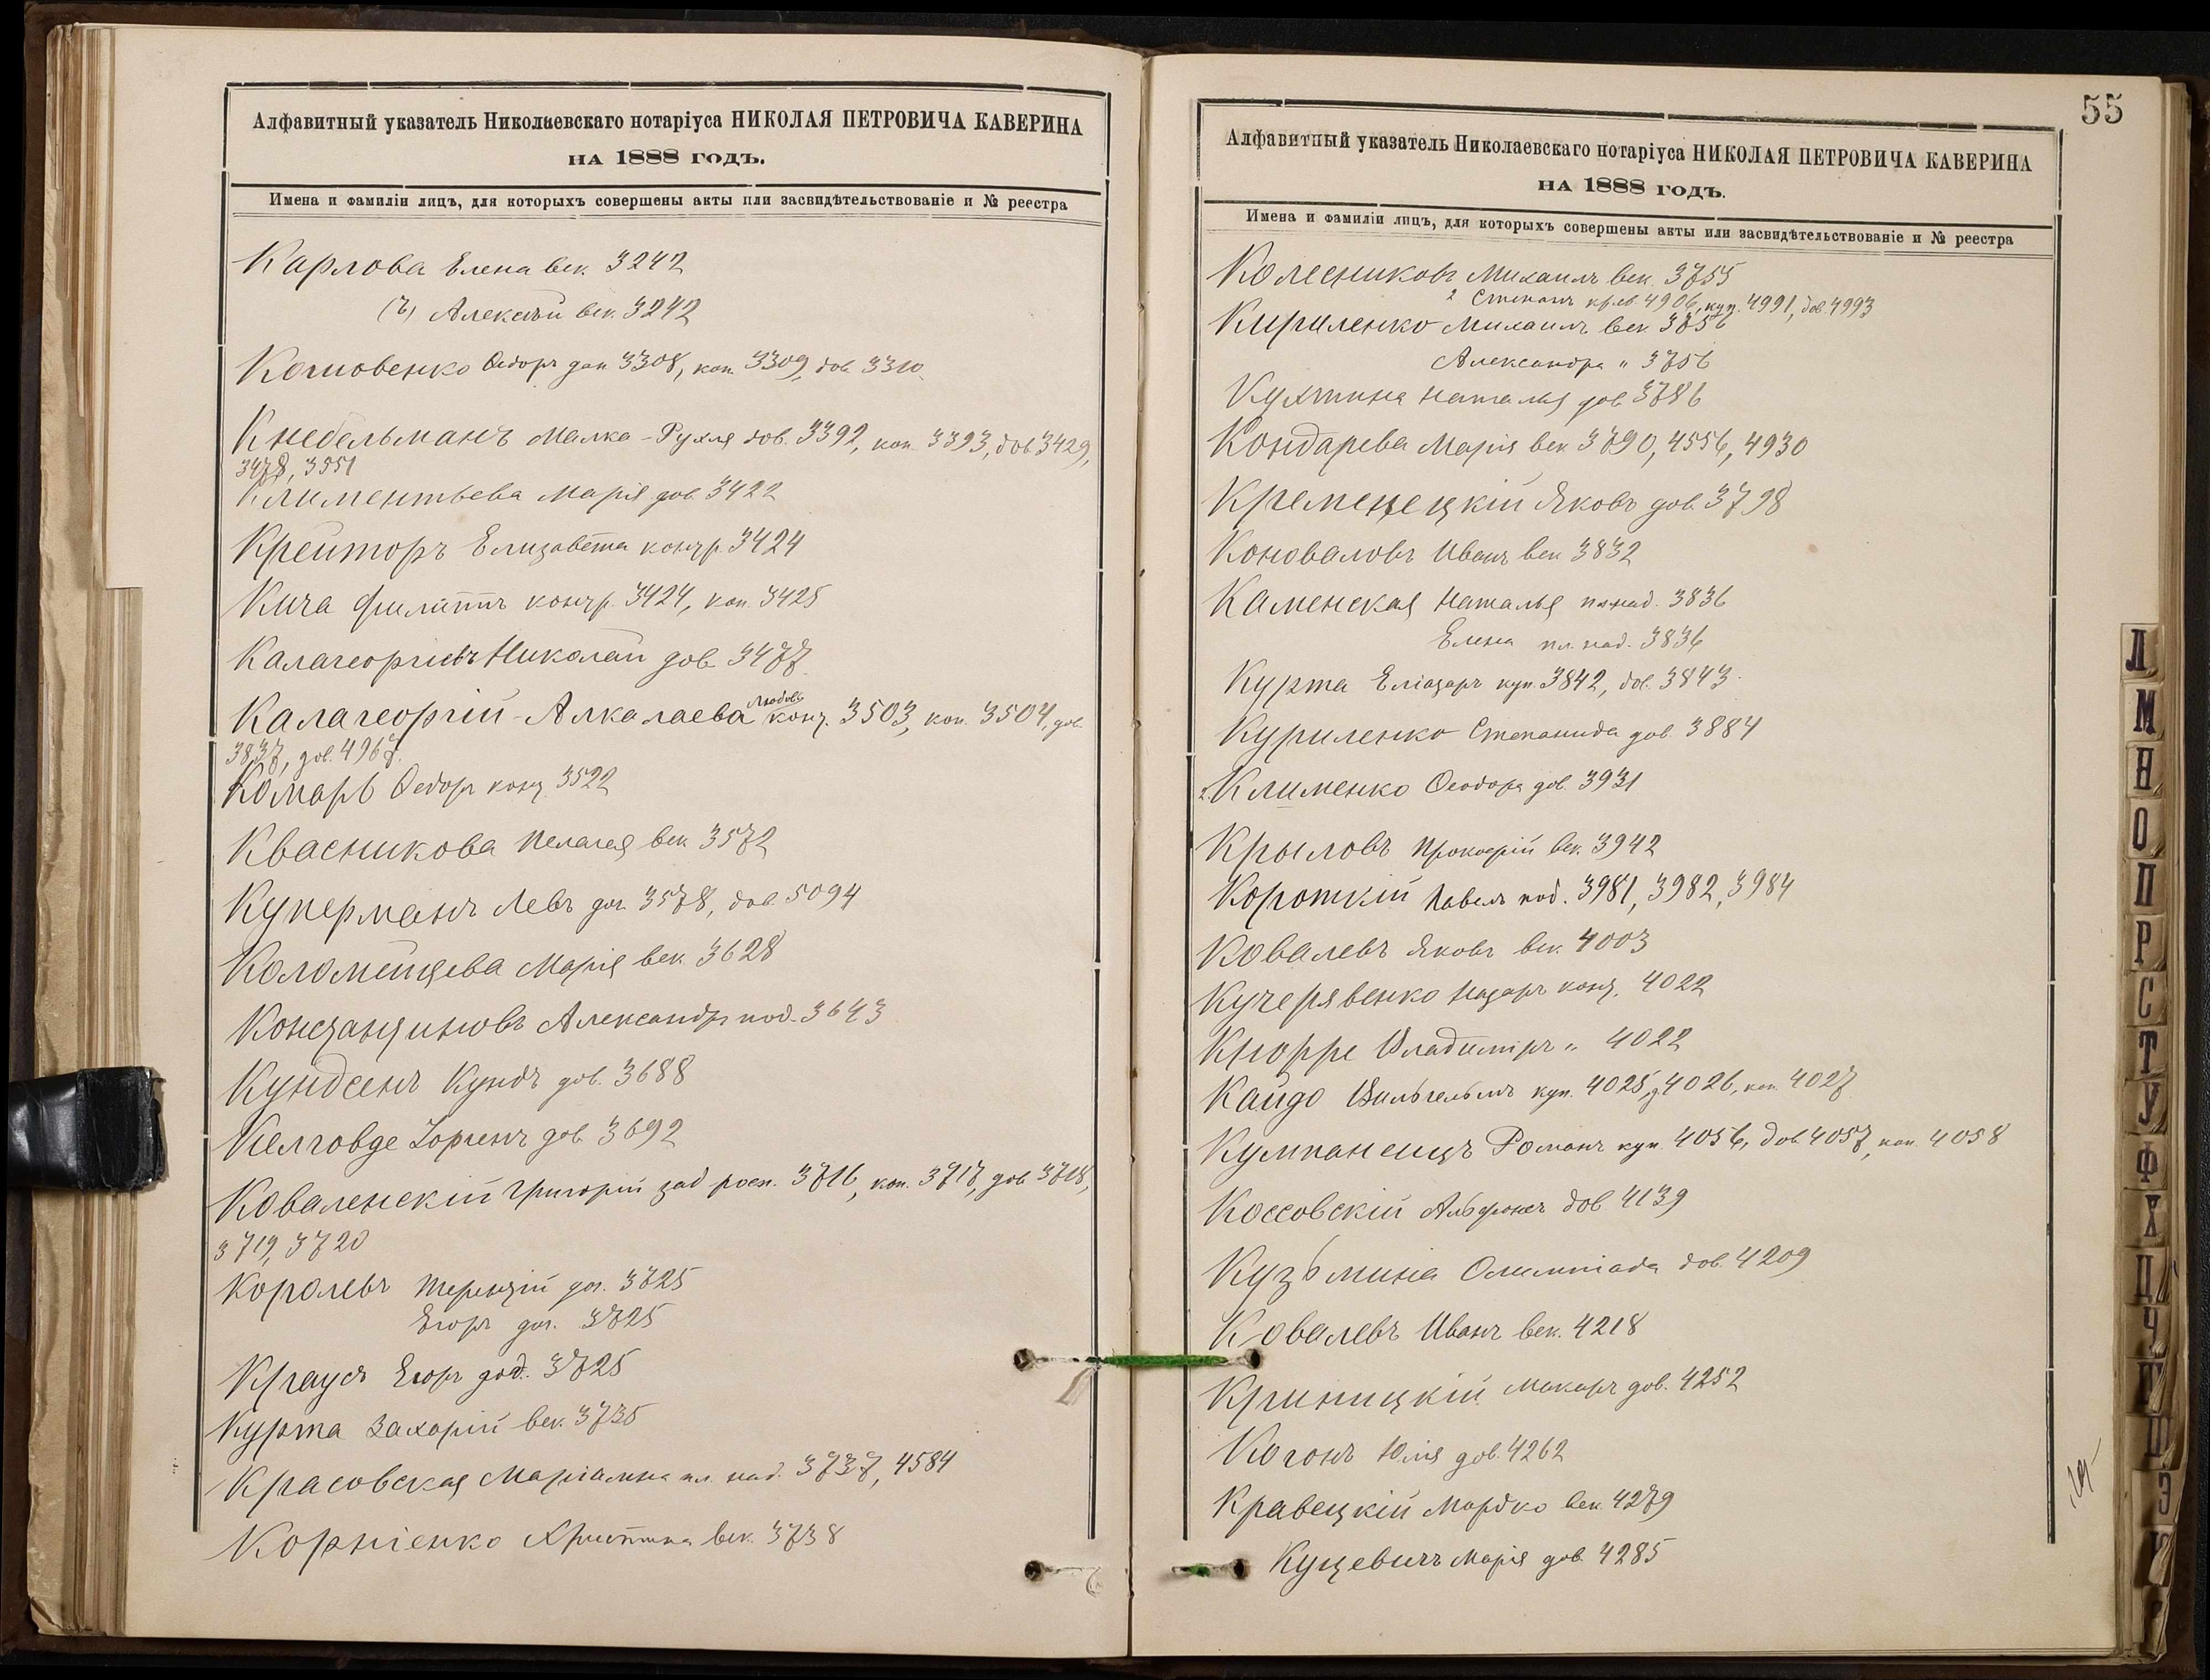 Алфавитный указатель Николаевскаго нотаріуса НИКОЛАЯ ПЕТРОВИЧА КАВЕРИНА
НА 1888 ГОДЪ.
Имена и фамиліи лицъ, для которыхъ совершены акты или засвидѣтельствованіе и № реестра
Карлова Елена век. 3242
Алексѣй век. 3242
Ѳедоръ 3308, коп. 3309, дов. 3310
Кнебельманъ Малка-Рухля дов. 3392, коп. 3393, дов. 3429,
3478, 3551
Климентьева Марія дов. 3422
Крейторъ Елизавета контр. 3424
Кича Филиппъ контр. 3424, коп. 3425
Калагеоргіевъ Николай дов. 3477
Калагеоргій-Алкалаева Любовь 3503, коп. 3504, дов.
3837, дов. 4967.
Комарь Ѳедоръ 3522
Квасникова Пелагея век. 3572
Куперманъ Левъ дог. 3578, дов. 5094
Коломейцева Марія век. 3628
Константиновъ Александръ под. 3643
Кундсенъ Кундъ дов. 3688
дов. 3692
Коваленскій Григорій зад. росп. 3716, коп. 3717, дов. 3718,
3719, 3720
Королевъ Терентій дог. 3725
Егоръ дог. 3725
Краусъ Егоръ 3725
Курта Захарій век. 3735
Красовская Маріамна пл. над. 3737, 4584
Корніенко Христина век. 3738
55
Алфавитный указатель Николаевскаго нотаріуса НИКОЛАЯ ПЕТРОВИЧА КАВЕРИНА
НА 1888 ГОДЪ.
Имена и фамиліи лицъ, для которыхъ совершены акты или засвидѣтельствованіе и № реестра
Колесниковъ Михаилъ век. 3755
2 Степанъ 4906, куп. 4991, дов. 4993
Кириленко Михаилъ век. 3756
Александра " 3756
Кухтина Наталья дов. 3786
Кондарева Марія век. 3790, 4556, 4930
Кременецкій Яковъ дов. 3798
Коноваловъ Иванъ век. 3832
Каменская Наталья пл. над. 3836
Елена пл. над. 3836
Курта Еліазаръ куп. 3842, дов. 3843.
Куриленко Степанида дов. 3884
Клименко Ѳеодора дов. 3931
Крыловъ Прокофій век. 3942
Короткій Павелъ под. 3981, 3982, 3984
Ковалевъ Яковъ век. 4003
Кучерявенко Назаръ 4022
Кнорре Владиміръ " 4022
Кайдо Вильгельмъ куп. 4025, 4026, коп. 4027
Кумпанецъ Романъ куп. 4056, дов. 4057, коп. 4058
Коссовскій Альфонсъ дов. 4139
Кузьмина Олимпіада дов. 4209
Ковалевъ Иванъ век. 4218
Криницкій Макаръ дов. 4252
Когонъ Юлія дов. 4262
Кравецкій Мордко век. 4279
Куцевичъ Марія дов. 4285
Л
М
Н
О
П
Р
С
Т
У
Ф
Х
Ц
Ч
Э